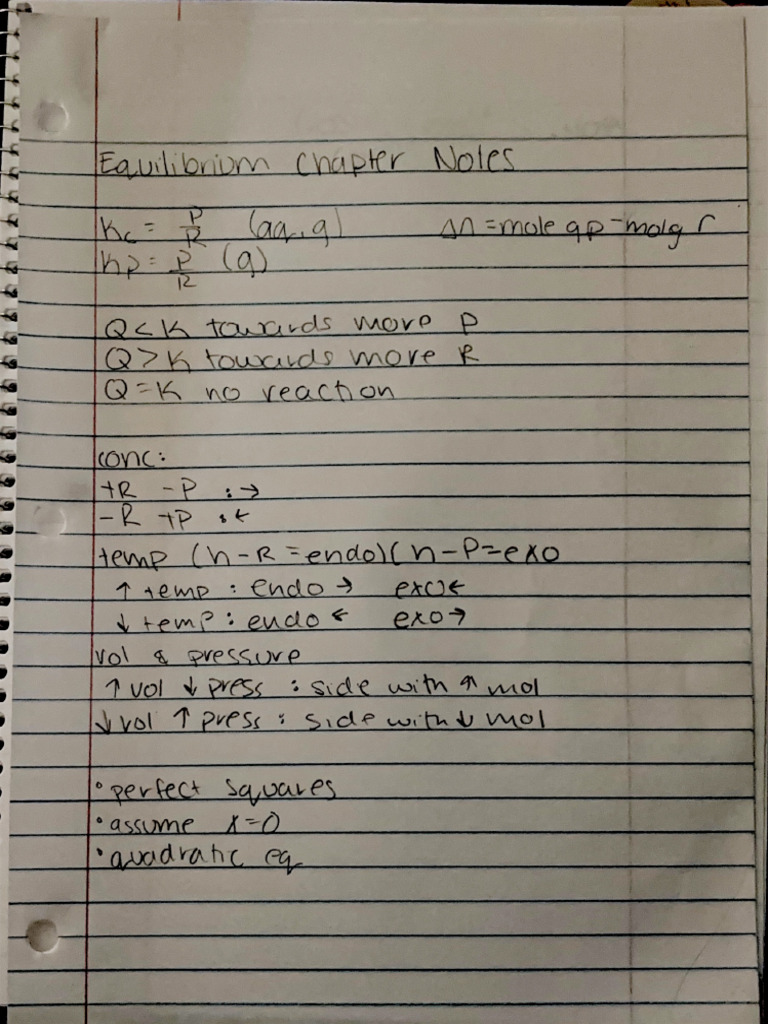 Equilibrium Chapter Notes
Kc = P/R (aq, g) Δn = mole gp - molg r
Kp = P/R (g)
Q < K towards more P
Q > K towards more R
Q = K no reaction
conc:
+R -P : →
-R +P : ←
temp (h-R = endo)(h-P = exo
↑ temp : endo → exo ←
↓ temp : endo ← exo →
vol & pressure
↑ vol ↓ press : side with ↑ mol
↓ vol ↑ press : side with ↓ mol
• perfect squares
• assume x=0
• quadratic eq